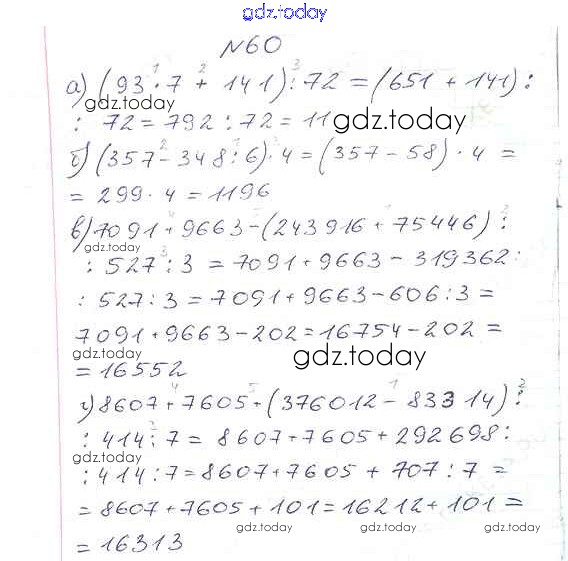 gdz.today
gdz.today
N60
а) (93·7 + 141):72 = (651 + 141) :
gdz.today
: 72 = 792 : 72 = 11
gdz.today
б) (357 - 348:6)·4 = (357 - 58) · 4 =
= 299 · 4 = 1196
в) 7091 + 9663 - (243916 + 75446) :
gdz.today
: 527 : 3 = 7091 + 9663 - 319362 :
: 527 : 3 = 7091 + 9663 - 606 : 3 =
7091 + 9663 - 202 = 16754 - 202 =
gdz.today
gdz.today
= 16552
г) 8607 + 7605 + (376012 - 83314) :
: 414 : 7 = 8607 + 7605 + 292698 :
gdz.today
: 414 : 7 = 8607 + 7605 + 707 : 7 =
= 8607 + 7605 + 101 = 16212 + 101 =
gdz.today
gdz.today
gdz.today
= 16313